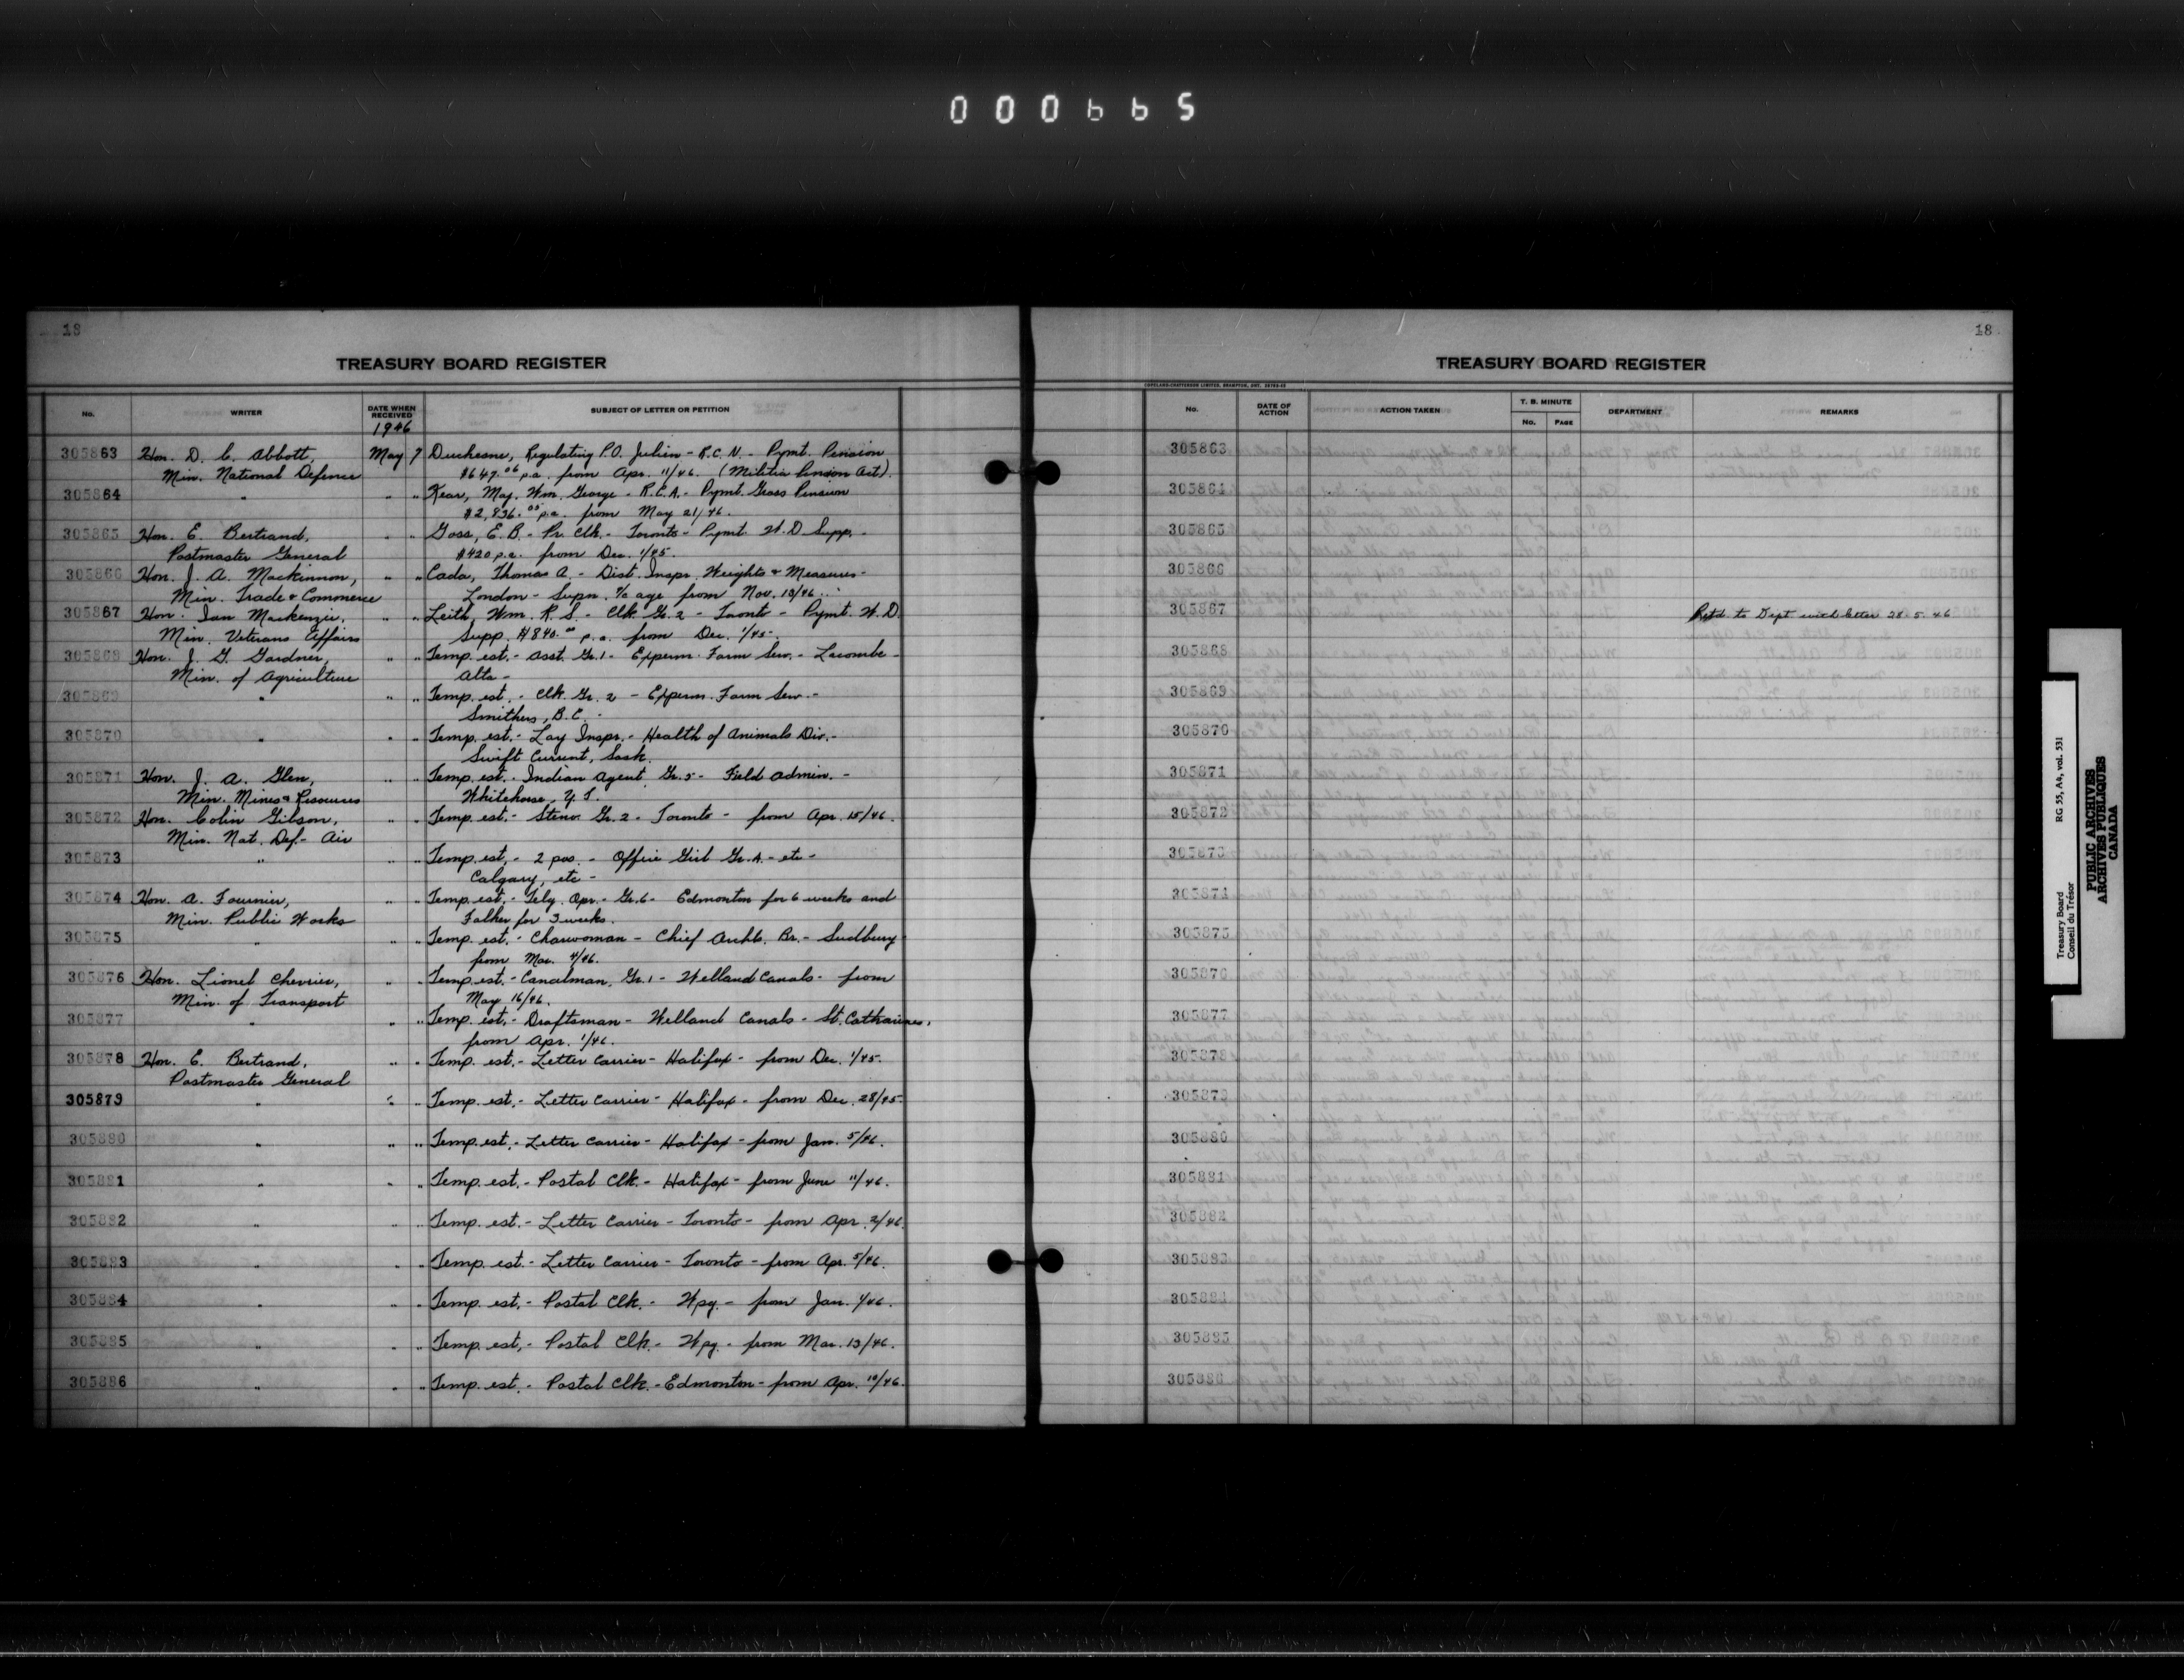 000665
18
TREASURY BOARD REGISTER
No. WRITER DATE WHEN RECEIVED SUBJECT OF LETTER OR PETITION
1946
305863 Hon. D. C. Abbott, May 7 Duchesne, Regulating P.O. Julien - R.C.N. - Pymt. Pension
Min. National Defence $647.06 p.a. from Apr. 11/46. (Militia Pension Act).
305864 " " " Kear, Maj. Wm. George - R.C.A. - Pymt. Gross Pension
$2,836.00 p.a. from May 21/46.
305865 Hon. E. Bertrand, " " Goss, E. B. - Pr. Clk. - Toronto - Pymt. W.D Supp. -
Postmaster General $420 p.a. from Dec. 1/45.
305866 Hon. J. A. Mackinnon, " " Cada, Thomas A. - Dist. Inspr. Weights & Measures -
Min. Trade & Commerce London - Supn. a/c age from Nov. 13/46
305867 Hon. Ian Mackenzie, " " Leith, Wm. R. S. - Clk. Gr. 2 - Toronto - Pymt. W.D.
Min. Veterans Affairs Supp. $840.00 p.a. from Dec. 1/45.
305868 Hon. J. G. Gardner, " " Temp. est. - Asst. Gr. 1 - Experm. Farm Serv. - Lacombe -
Min. of Agriculture Alta -
305869 " " " Temp. est. - Clk. Gr. 2 - Experm. Farm Serv. -
Smithers, B.C. -
305870 " " " Temp. est. - Lay Inspr. - Health of Animals Div. -
Swift Current, Sask.
305871 Hon. J. A. Glen, " " Temp. est. - Indian Agent Gr. 5 - Field Admin. -
Min. Mines & Resources Whitehorse, Y.T.
305872 Hon. Colin Gibson, " " Temp. est. - Steno. Gr. 2 - Toronto - from Apr. 15/46.
Min. Nat. Def. - Air
305873 " " " Temp. est. - 2 pos. - Office Girl Gr. A. - etc -
Calgary, etc -
305874 Hon. A. Fournier, " " Temp. est. - Tely. Opr. - Gr. 6 - Edmonton for 6 weeks and
Min. Public Works Falher for 3 weeks.
305875 " " " Temp. est. - Charwoman - Chief Archt. Br. - Sudbury
from Mar. 4/46.
305876 Hon. Lionel Chevrier, " " Temp. est. - Canalman, Gr. 1 - Welland Canals - from
Min. of Transport May 16/46.
305877 " " " Temp. est. - Draftsman - Welland Canals - St. Catharines,
from Apr. 1/46.
305878 Hon. E. Bertrand, " " Temp. est. - Letter Carrier - Halifax - from Dec. 1/45.
Postmaster General
305879 " " " Temp. est. - Letter Carrier - Halifax - from Dec. 28/45.
305880 " " " Temp. est. - Letter Carrier - Halifax - from Jan. 5/46.
305881 " " " Temp. est. - Postal Clk. - Halifax - from June 11/46.
305882 " " " Temp. est. - Letter Carrier - Toronto - from Apr. 2/46.
305883 " " " Temp. est. - Letter Carrier - Toronto - from Apr. 5/46.
305884 " " " Temp. est. - Postal Clk. - Wpg. - from Jan. 1/46.
305885 " " " Temp. est. - Postal Clk. - Wpg. - from Mar. 13/46.
305886 " " " Temp. est. - Postal Clk. - Edmonton - from Apr. 10/46.
18
TREASURY BOARD REGISTER
COPELAND-CHATTERSON LIMITED, BRAMPTON, ONT.
No. DATE OF ACTION ACTION TAKEN T. B. MINUTE No. PAGE DEPARTMENT REMARKS
305863
305864
305865
305866
305867 Retd. to Dept with letter 28.5.46
305868
305869
305870
305871
305872
305873
305874
305875
305876
305877
305878
305879
305880
305881
305882
305883
305884
305885
305886
Treasury Board RG 55, A4, vol. 531
Conseil du Trésor
PUBLIC ARCHIVES
ARCHIVES PUBLIQUES
CANADA